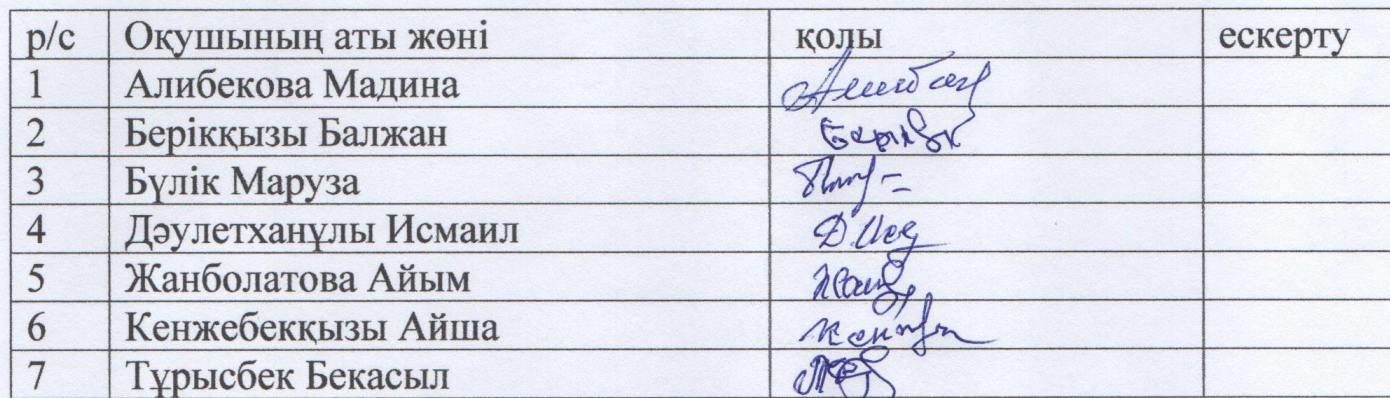 р/с Оқушының аты жөні қолы ескерту
1 Алибекова Мадина
2 Берікқызы Балжан
3 Бүлік Маруза
4 Дәулетханұлы Исмаил
5 Жанболатова Айым
6 Кенжебекқызы Айша
7 Тұрысбек Бекасыл